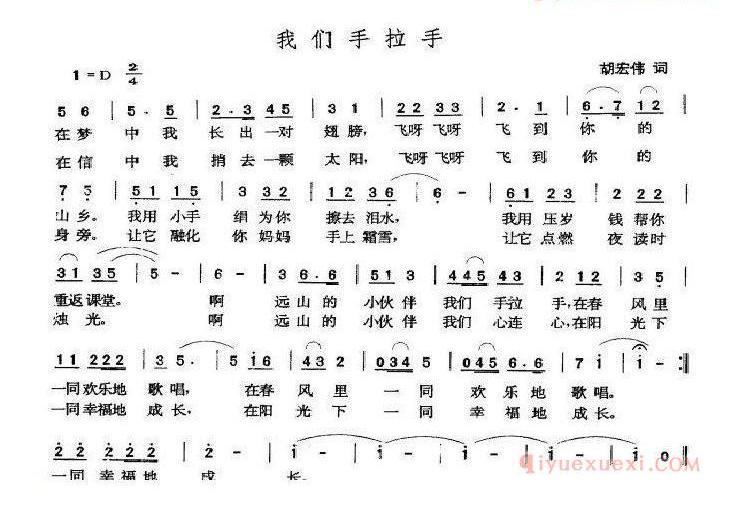 我们手拉手
1=D 2/4
胡宏伟 词
5 6 | 5. 5 | 2.3 45 | 3 1 | 22 33 | 2. 1 | 6.7 12 |
在梦 中我 长出一对 翅膀, 飞呀飞呀 飞到你的
在信 中我 捎去一颗 太阳, 飞呀飞呀 飞到你的
7 3 | 51 15 | 3 32 | 12 36 | 6 - | 61 23 | 2 22 |
山乡。 我用小手 绢为你 擦去泪水, 我用压岁 钱帮你
身旁。 让它融化 你妈妈 手上霜雪, 让它点燃 夜读时
31 35 | 5 - | 6 - | 3 6.6 | 51 3 | 445 43 | 2 12 | 35 |
重返课堂。 啊 远山的 小伙伴 我们手拉 手,在春 风里
烛光。 啊 远山的 小伙伴 我们心连 心,在阳 光下
11 222 | 35. | 5 16 | 432 | 0345 | 045 6.6 | 7 i | i - :||
一同欢乐地 歌唱, 在春风里 一同 欢乐地 歌唱。
一同幸福地 成长, 在阳光下 一同 幸福地 成长。
2 2 2 2 2 | 2 - | 2 - | i - | i - | i - | i 0 ||
一同幸福地 成 长。
iyuexuexi.com